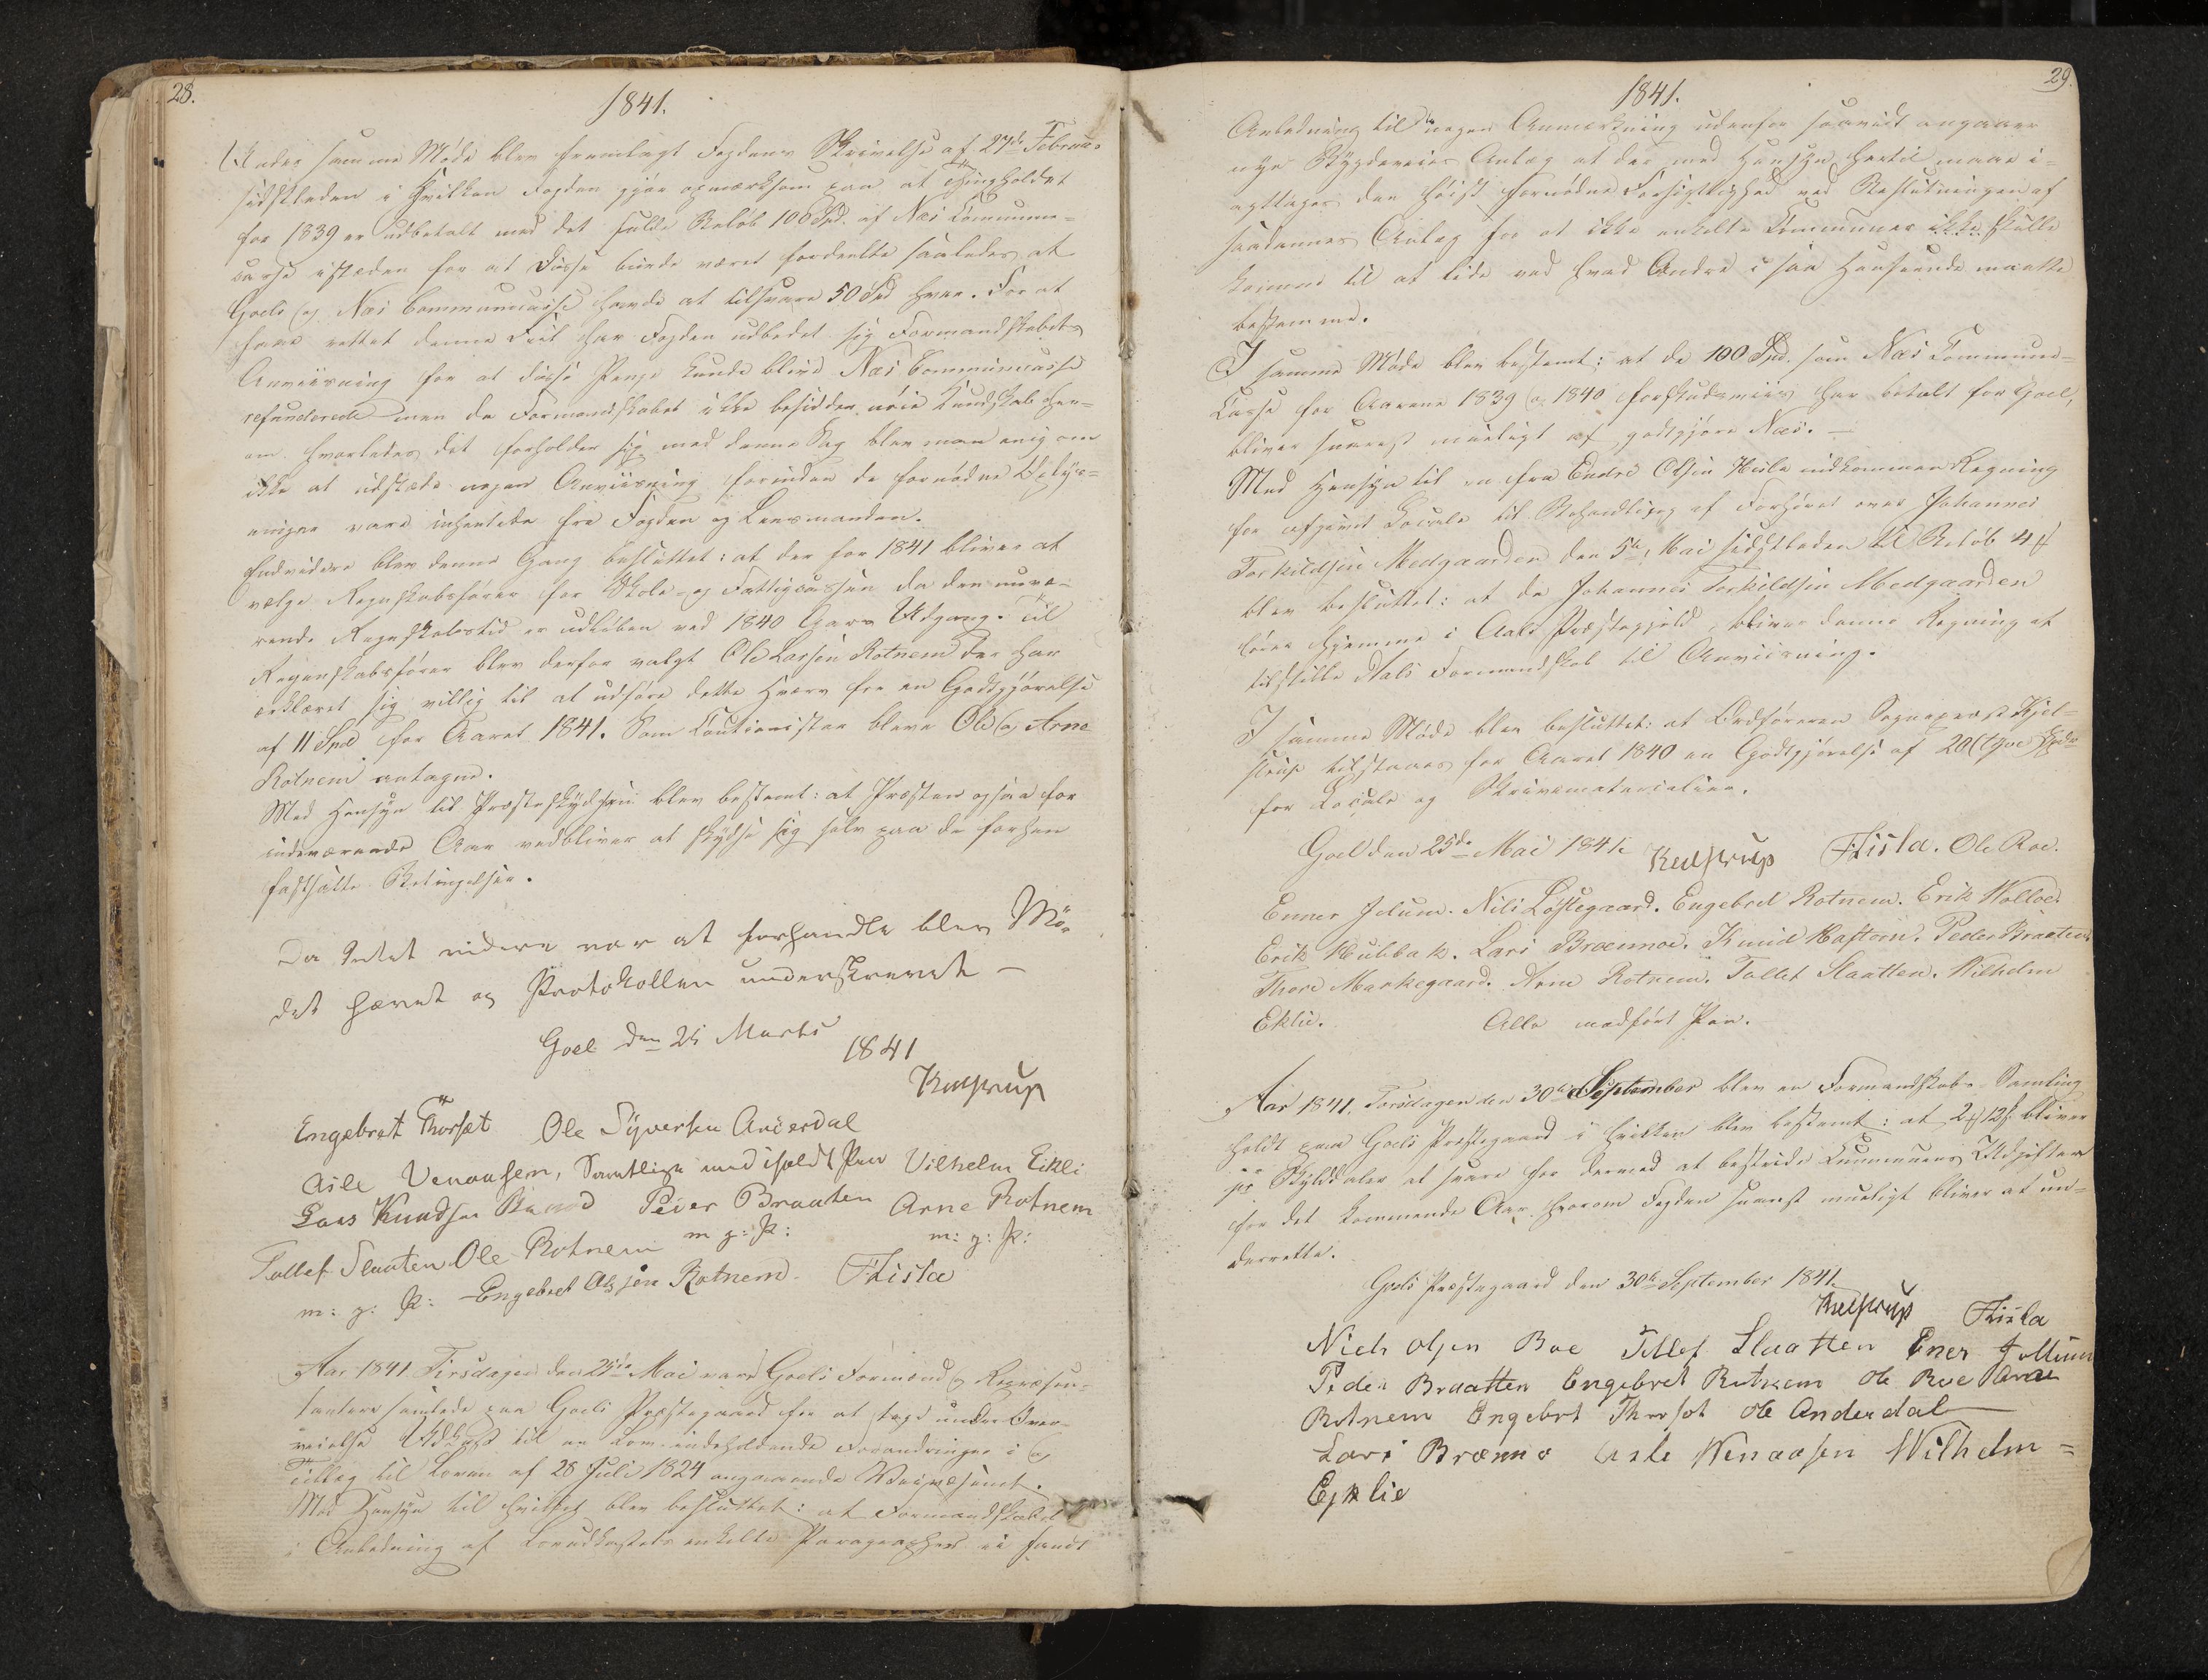 28.
1841.
Under samme Møde blev fremlagt Fogdens Skrivelse af 27de Februar
sidstleden i hvilken Fogden gjør opmærksom paa at Thingholdet
for 1839 er udbetalt med det fulde Beløb 100 Spd. af Næs Commune-
casse istæden for at disse burde været fordeelte saaledes at
Goels og Næs Communecasse havde at tilsvare 50 Spd hver. For at
faae rettet denne Feil har Fogden udbedet sig Formandskabets
Anviisning for at disse Penge kunde blive Næs Communecasse
refunderede men da Formandskabet ikke besidder nøie Kundskab her-
om hvorledes det forholder sig med denne Sag blev man enig om
ikke at udstæde nogen Anviisning forinden de fornødne Oplys-
ninger vare indhentede fra Fogden og Lensmanden.
Endvidere blev denne Gang besluttet: at der for 1841 bliver at
vælge Regnskabsfører for Skole- og Fattigcassen da den nuvæ-
rende Regnskabstid er udløben ved 1840 Aars Udgang. Til
Regnskabsfører blev derfor valgt Ole Larsen Rotnem der har
erklæret sig villig til at udføre dette Hverv for en Godtgjørelse
af 11 Spd for Aaret 1841. Som Cautionister bleve Ole og Arne
Rotnem antagne.
Med Hensyn til Præsteskydsen blev bestemt: at Præsten ogsaa for
indeværende Aar vedbliver at skydse sig selv paa de forhen
fastsatte Betingelser.
Da Intet videre var at forhandle blev Mø-
det hævet og Protokollen underskrevet —
Goel den 25 Marts
1841
Kielstrup
Engebret Thorset Ole Syversen Anderdal
Asle Venaasen, Samtlige med iholdt Pen Vilhelm Eikli
Lars Knudsen Peder Braaten Arne Rotnem
Tollef Slaaten Ole Rotnem m: g: P: m: g: P:
m: g: P: Engebret Olsen Rotnem. THisla
Aar 1841 Tirsdagen den 25de Mai vare Goels Formænd og Repræsen-
tantere samlede paa Goels Præstegaard for at tage under Over-
veielse Udkast til en Lov indeholdende Forandringer i og
Tillæg til Loven af 28 Juli 1824 angaaende Veivæsenet.
Med Hensyn til hvilket blev besluttet: at Formandskabet
i Anledning af Lovudkastets enkelte Paragrapher ei fandt
29.
1841.
Anledning til nogen Anmærkning udenfor saavidt angaaer
nye Bygdeveies Anlæg at der med Hensyn hertil maae i-
agttages den høist fornødne Forsigtighed ved Beslutningen af
saadannes Anlæg for at ikke enkelte Communer ikke skulle
komme til at lide ved hvad Andre i saa Henseende maatte
bestemme.
I samme Møde blev bestemt: at de 100 Spd. som Næs Commune-
Casse for Aarene 1839 og 1840 forskudsviis har betalt for Goel,
bliver snarest mueligt at godtgjøre Næs. —
Med Hensyn til en fra Endre Olsen Hesla indkommen Regning
for afgivet Locale til Behandling af Forhøret over Johannes
Torkildsen Medgaarden den 5te Mai sidstleden til Beløb 4
blev besluttet: at da Johannes Torkildsen Medgaarden
hører hjemme i Aals Præstegjeld, bliver denne Regning at
tilstille Aals Formandskab til Anviisning.
I samme Møde blev besluttet: at Ordføreren Sognepræst Kjel-
strup tilstaaes for Aaret 1840 en Godtgjørelse af 20 (tyve) Spd
for Locale og Skrivematerialier.
Goel den 25de Mai 1841 Kielstrup THisla. Ole Roe.
Enner Jelum. Nils Løstegaard. Engebret Rotnem. Erik Wolloe.
Erik Hulbak. Lars Brænnoe. Knud Haftorn. Peder Braaten
Thore Markegaard. Arne Rotnem. Tollef Slaatten. Wilhelm
Eklie. Alle medført Pen.
Aar 1841. Torsdagen den 30te September blev en Formandskabs-Samling
holdt paa Goels Præstegaard i hvilken blev bestemt: at 12 ß bliver
pr Skylddaler at svare for dermed at bestride Communens Udgifter
for det kommende Aar hvorom Fogden snarest mueligt bliver at un-
derrette.
Goels Præstegaard den 30te September 1841.
Kielstrup THisla
Niels Olsen Boe Tollef Slaatten Ener Jellum
Peder Braatten Engebret Rotnem Ole Roe Arne
Rotnem Engebrt Thorset Ole Anderdal
Lars Brænno Asle Wenaasen Wilhelm =
Ejklie